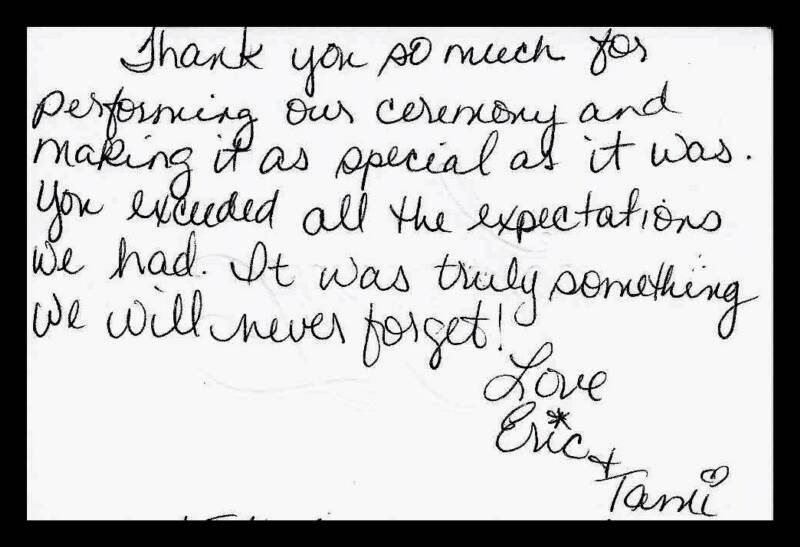 Thank you so much for
performing our ceremony and
making it as special as it was.
You exceeded all the expectations
we had. It was truly something
we will never forget!
Love
Eric +
Tami